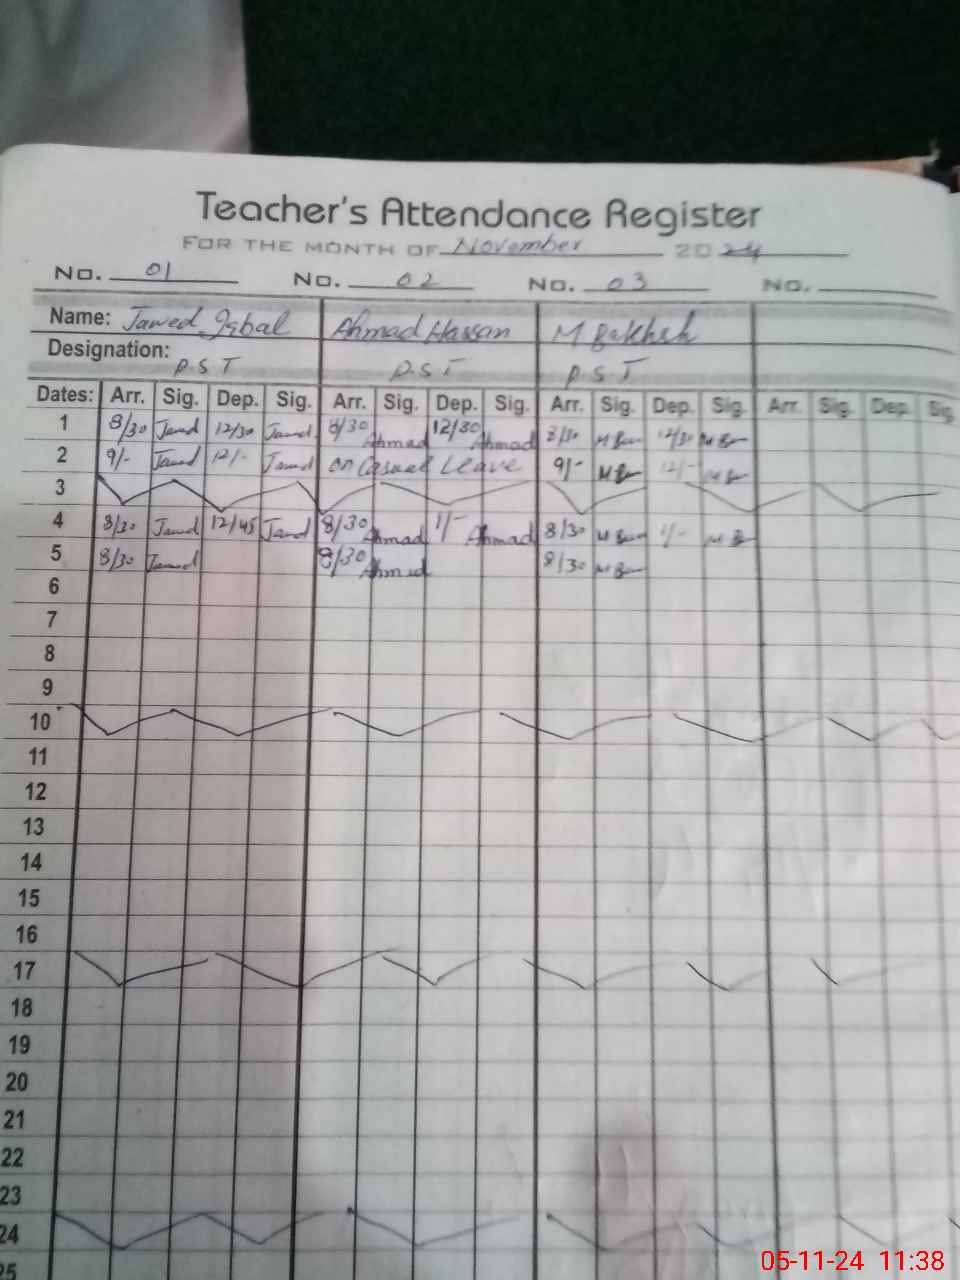 Teacher's Attendance Register
FOR THE MONTH OF November 2024
No. 01 No. 02 No. 03 No.
Name: Jawed Iqbal Ahmad Hassan M Bakhsh
Designation: P.S.T P.S.T P.S.T
Dates: Arr. Sig. Dep. Sig. Arr. Sig. Dep. Sig. Arr. Sig. Dep. Sig. Arr. Sig. Dep. Sig.
1 8/30 Jawed 12/30 Jawed 8/30 Ahmad 12/30 Ahmad 8/30 12/30
2 9/- Jawed 12/- Jawed on Casual Leave 9/- 12/-
3
4 8/30 Jawed 12/45 Jawed 8/30 Ahmad 1/- Ahmad 8/30 1/-
5 8/30 Jawed 8/30 Ahmad 8/30
6
7
8
9
10
11
12
13
14
15
16
17
18
19
20
21
22
23
24
25
05-11-24 11:38